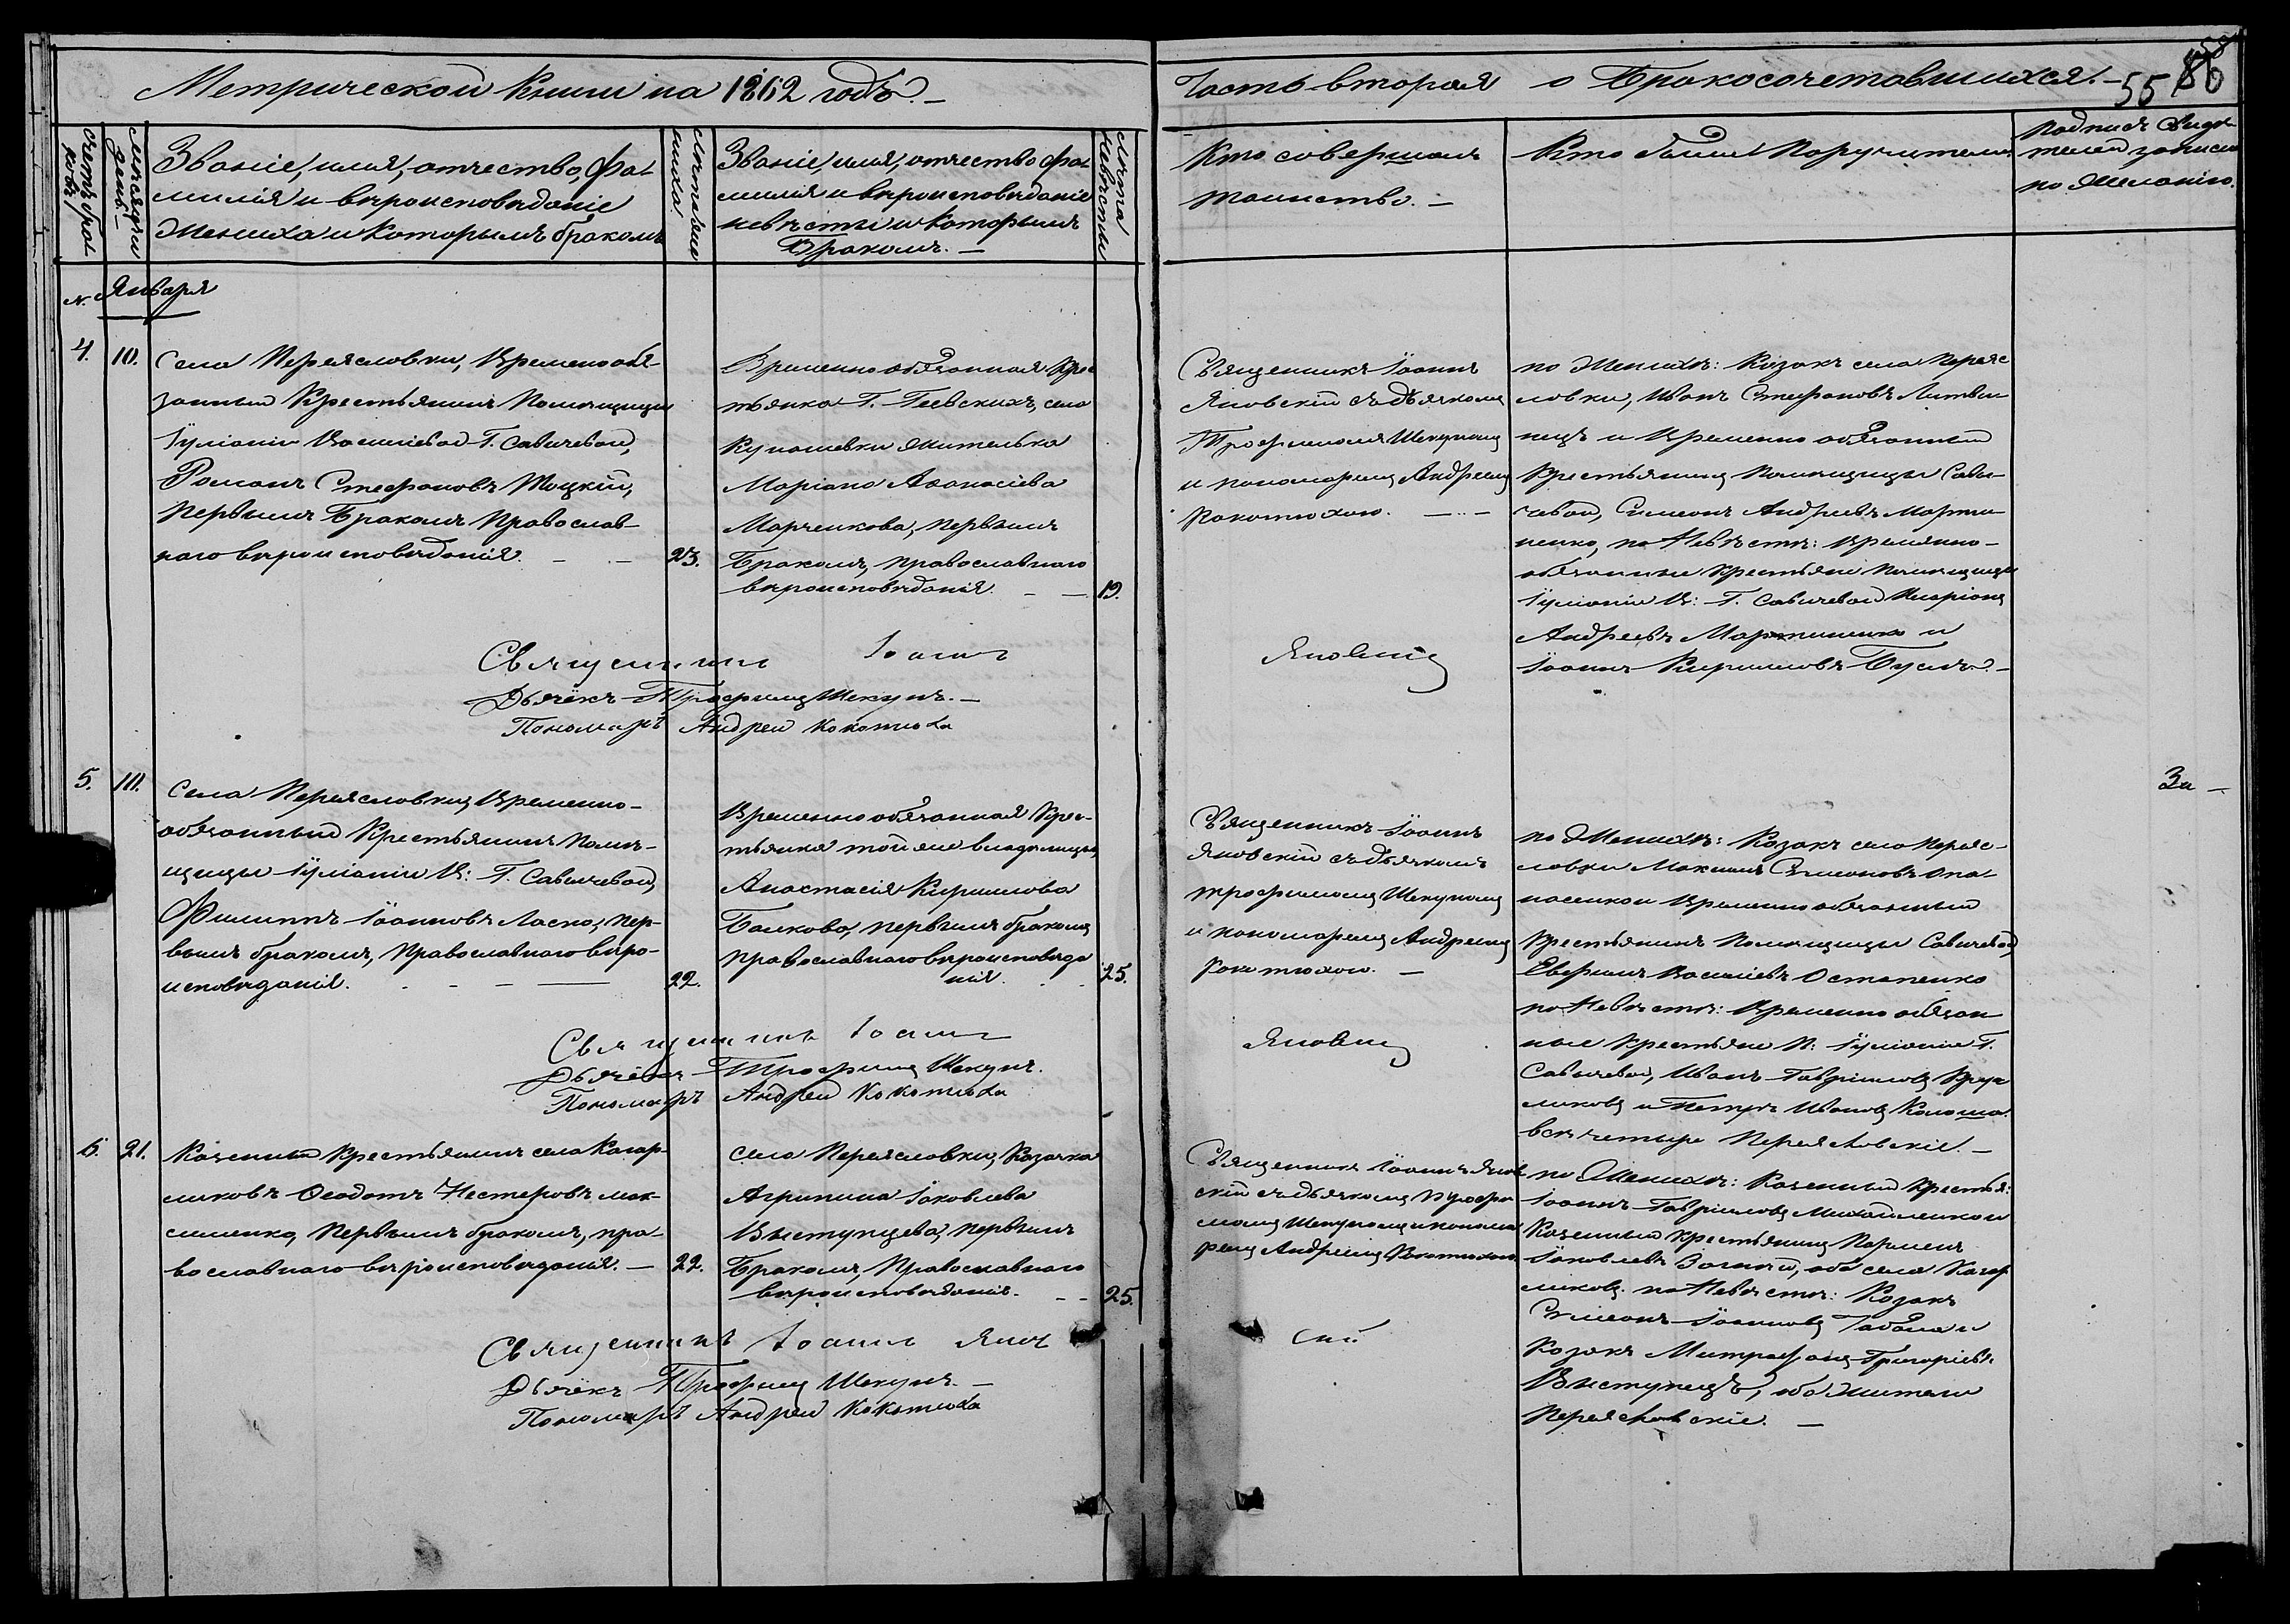 Метрической Книги на 1862 годъ.
Часть вторая о Бракосочетавшихся.
55
Счетъ бра-
ковъ
Мѣсяцъ и
день.
Званіе, имя, отчество, фа-
милія и вѣроисповѣданіе
Жениха и которымъ бракомъ
Лѣта же-
ниха.
Званіе, имя, отчество фа-
милія и вѣроисповѣданіе
невѣсты и которымъ
Бракомъ.
Лѣта
невѣсты
Кто совершалъ
таинство.
Кто были Поручители
Подпись Свидѣ-
телей записи
по желанію.
N. Января
4.
10.
Села Переясловки, Временообя-
занный Крестьянинъ Помѣщицы
Іуліаніи Василіевой Г. Савичевой,
Романъ Стефановъ Моцкій,
первымъ Бракомъ Православ-
наго вѣроисповѣданія.
23.
Временнообязанная Крес-
тьянка Г. Геевскихъ, села
Купашевки жителька
Маріана Аѳанасіева
Марченкова, первымъ
Бракомъ, православнаго
вѣроисповѣданія.
19.
Священникъ Іоаннъ
Яновскій съ дьячкомъ
Трофимомъ Шекуномъ
и пономаремъ Андреемъ
Кокотюхою.
по Женихѣ: Козакъ села Переяс
ловки, Иванъ Стефановъ Литви-
нецъ и Временно обязанный
Крестьянинъ Помѣщицы Сави-
чевой, Симеонъ Андреевъ Марти-
ненко, по Невѣстѣ: Временно-
обязанные Крестьяне Помѣщицы
Іуліаніи В: Г. Савичевой Иларіонъ
Андреевъ Мартиненко и
Іоаннъ Кирилловъ Бусъ.
Священникъ Іоаннъ Яновскій
Дьячекъ Трофимъ Шекунъ.
Пономарь Андрей Кокотюха
5.
За
Села Переясловки, Временно-
обязанный Крестьянинъ Помѣ-
щицы Іуліаніи В: Г. Савичевой,
Филиппъ Іоанновъ Ласко, пер-
вымъ бракомъ, Православнаго вѣро-
исповѣданія.
22.
Временнообязанная Крес-
тьянка той же владѣлицы,
Анастасія Кириллова
Балкова, первымъ бракомъ
православнаго вѣроисповѣда
нія.
25.
Священникъ Іоаннъ
Яновскій съ дьячкомъ
трофимомъ Шекуномъ
и пономаремъ Андреемъ
Кокотюхою.
по Женихѣ: Козакъ села Переяс-
ловки Максимъ Симеоновъ Опа-
насенко и Временно обязанный
Крестьянинъ Помѣщицы Савичевой,
Евфимъ Василіевъ Остапенко
по Невѣстѣ: Временно обязан
ные Крестьяне П: Іуліаніи Г.
Савичевой, Иванъ Гавріиловъ Круг
ликовъ и Петръ Ивановъ Калоша.
всѣ четыре Переясловскіе.
Священникъ Іоаннъ Яновскій
Дьячекъ Трофимъ Шекунъ.
Пономарь Андрей Кокотюха
6.
21.
Казенный Крестьянинъ села Кагар-
ликовъ Ѳеодотъ Нестеровъ мак-
сименко, Первымъ бракомъ, пра-
вославнаго вѣроисповѣданія.
22.
Села Переясловки, Козачка
Агрипина Іаковлева
Выступцева, первымъ
Бракомъ, Православнаго
вѣроисповѣданія.
25.
Священникъ Іоаннъ Янов
скій съ дьячкомъ Трофи
момъ Шекуномъ и понома
ремъ Андреемъ Кокотюхою.
по Женихѣ: Казенный Крестья:
Іоаннъ Гавріиловъ Михайленко и
Казенный Крестьянинъ Парменъ
Іаковлевъ, оба села Кагар
ликовъ. по Невѣстѣ: Козакъ
Симеонъ Іоанновъ и
Козакъ Митрофанъ Григоріевъ
Выступецъ, оба жители
Переясловскіе.
Священникъ Іоаннъ Яновскій
Дьячекъ Трофимъ Шекунъ.
Пономарь Андрей Кокотюха